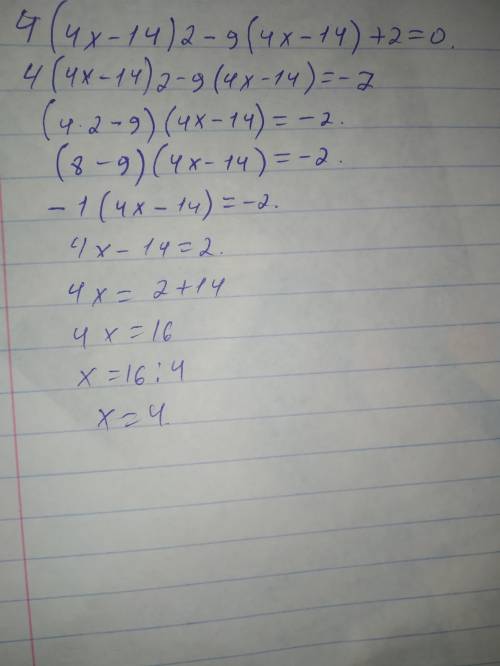 4(4x-14)2-9(4x-14)+2=0.
4(4x-14)2-9(4x-14)=-2
(4·2-9)(4x-14)=-2.
(8-9)(4x-14)=-2.
-1(4x-14)=-2.
4x-14=2.
4x= 2+14
4x=16
x=16:4
x=4.